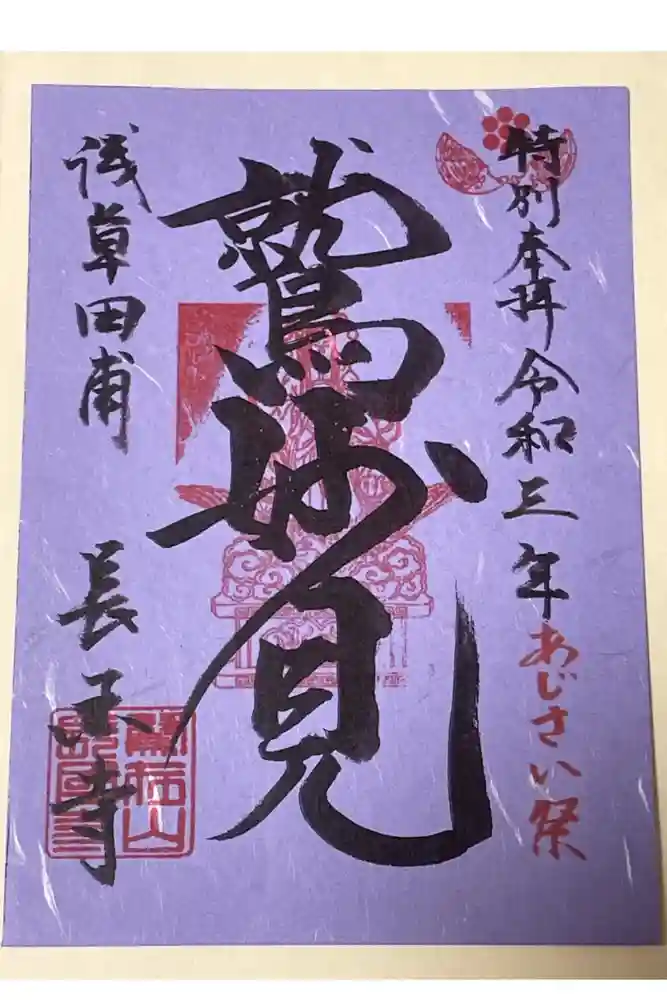 特別奉拝 令和三年 あじさい祭
鷲妙見
浅草田甫
長国寺
鷲在山
長国寺